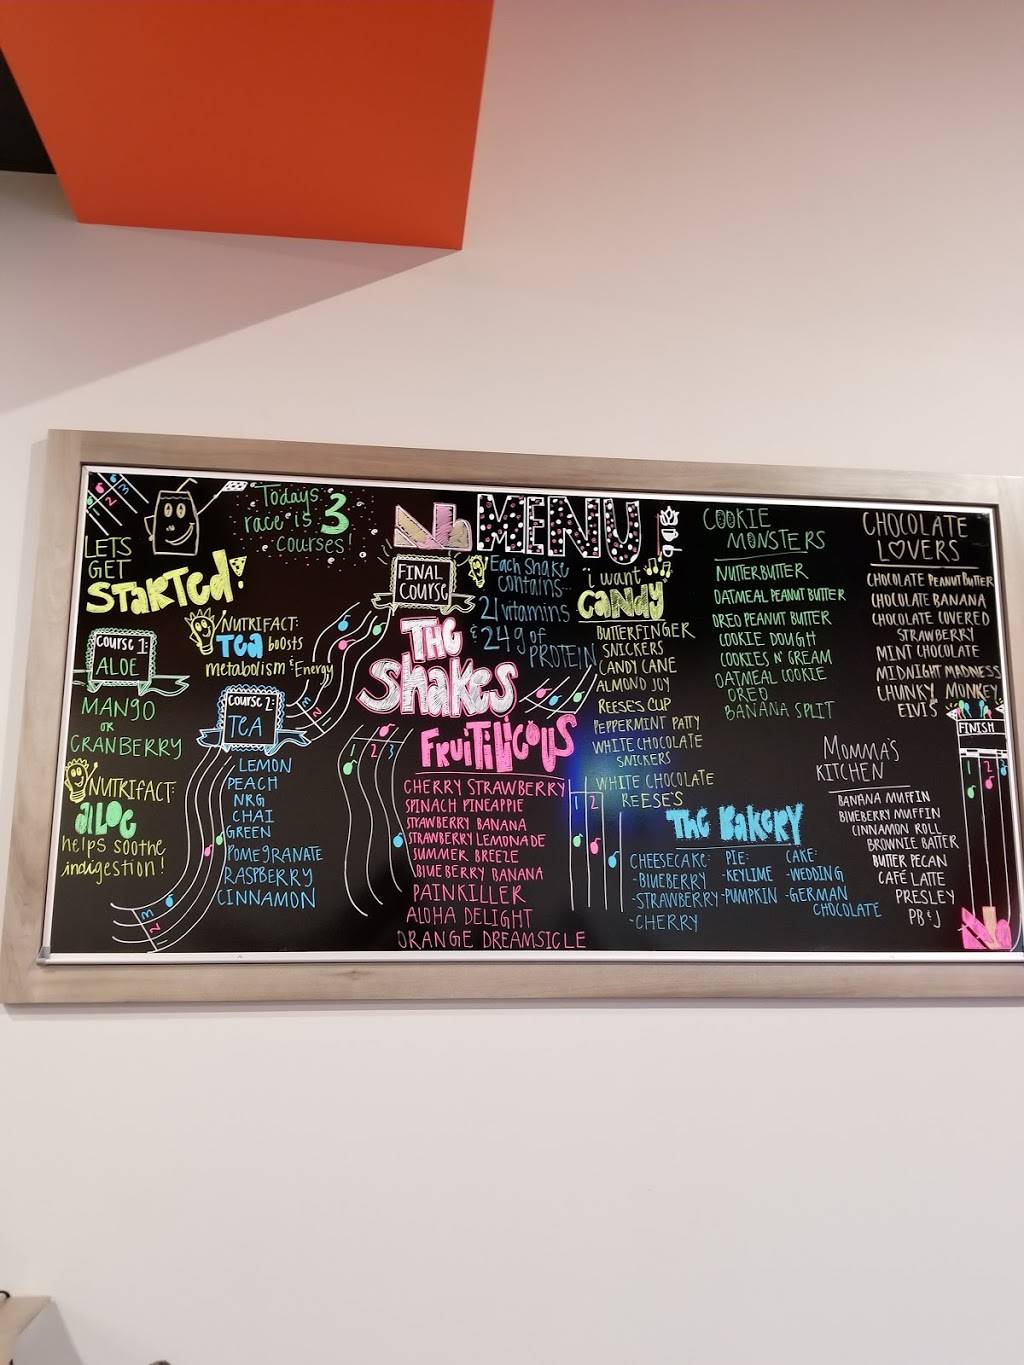 LETS
GET
STARTED!
Todays
race is 3
courses!
Course 1:
ALOE
MANGO
OR
CRANBERRY
NUTRIFACT:
ALOE
helps soothe
indigestion!
NUTRIFACT:
TEA boosts
metabolism & Energy
Course 2:
TEA
LEMON
PEACH
NRG
CHAI
GREEN
POMEGRANATE
RASPBERRY
CINNAMON
MENU
FINAL
COURSE
THE
SHAKES
Each shake
contains...
21 vitamins
& 24g of
PROTEIN
FRUITILICOUS
CHERRY STRAWBERRY
SPINACH PINEAPPLE
STRAWBERRY BANANA
STRAWBERRY LEMONADE
SUMMER BREEZE
BLUEBERRY BANANA
PAINKILLER
ALOHA DELIGHT
ORANGE DREAMSICLE
i want
CANDY
BUTTERFINGER
SNICKERS
CANDY CANE
ALMOND JOY
REESE'S CUP
PEPPERMINT PATTY
WHITE CHOCOLATE
SNICKERS
WHITE CHOCOLATE
REESE'S
COOKIE
MONSTERS
NUTTERBUTTER
OATMEAL PEANUT BUTTER
OREO PEANUT BUTTER
COOKIE DOUGH
COOKIES N' CREAM
OATMEAL COOKIE
OREO
BANANA SPLIT
The Bakery
CHEESECAKE:
-BLUEBERRY
-STRAWBERRY
-CHERRY
PIE:
-KEYLIME
-PUMPKIN
CAKE:
-WEDDING
-GERMAN
CHOCOLATE
CHOCOLATE
LOVERS
CHOCOLATE PEANUT BUTTER
CHOCOLATE BANANA
CHOCOLATE COVERED
STRAWBERRY
MINT CHOCOLATE
MIDNIGHT MADNESS
CHUNKY MONKEY
ELVIS
MOMMA'S
KITCHEN
BANANA MUFFIN
BLUEBERRY MUFFIN
CINNAMON ROLL
BROWNIE BATTER
BUTTER PECAN
CAFÉ LATTE
PRESLEY
PB & J
FINISH
1 2 3